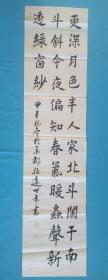 更深月色半人家北斗闌干南
斗斜今夜偏知春氣暖蟲聲新
透綠窗紗